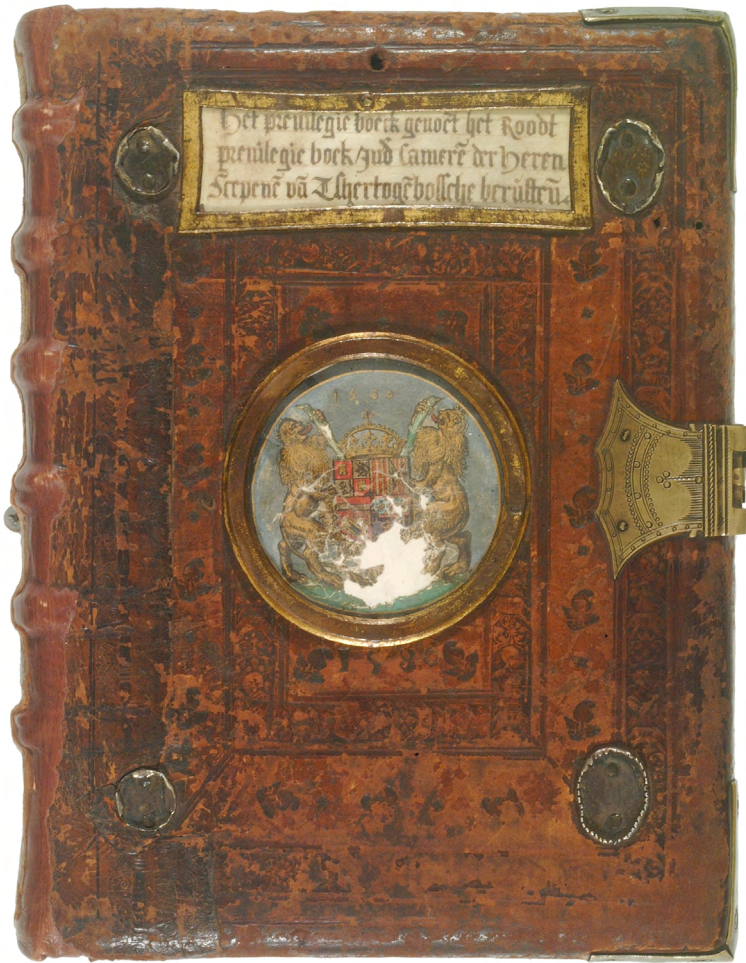 Het preuilegie boeck genoēt het Roodt
preuilegie boeck / Jnd Camerē der Heren
Scrpenē vā Tshertogēbossche berūstēn.